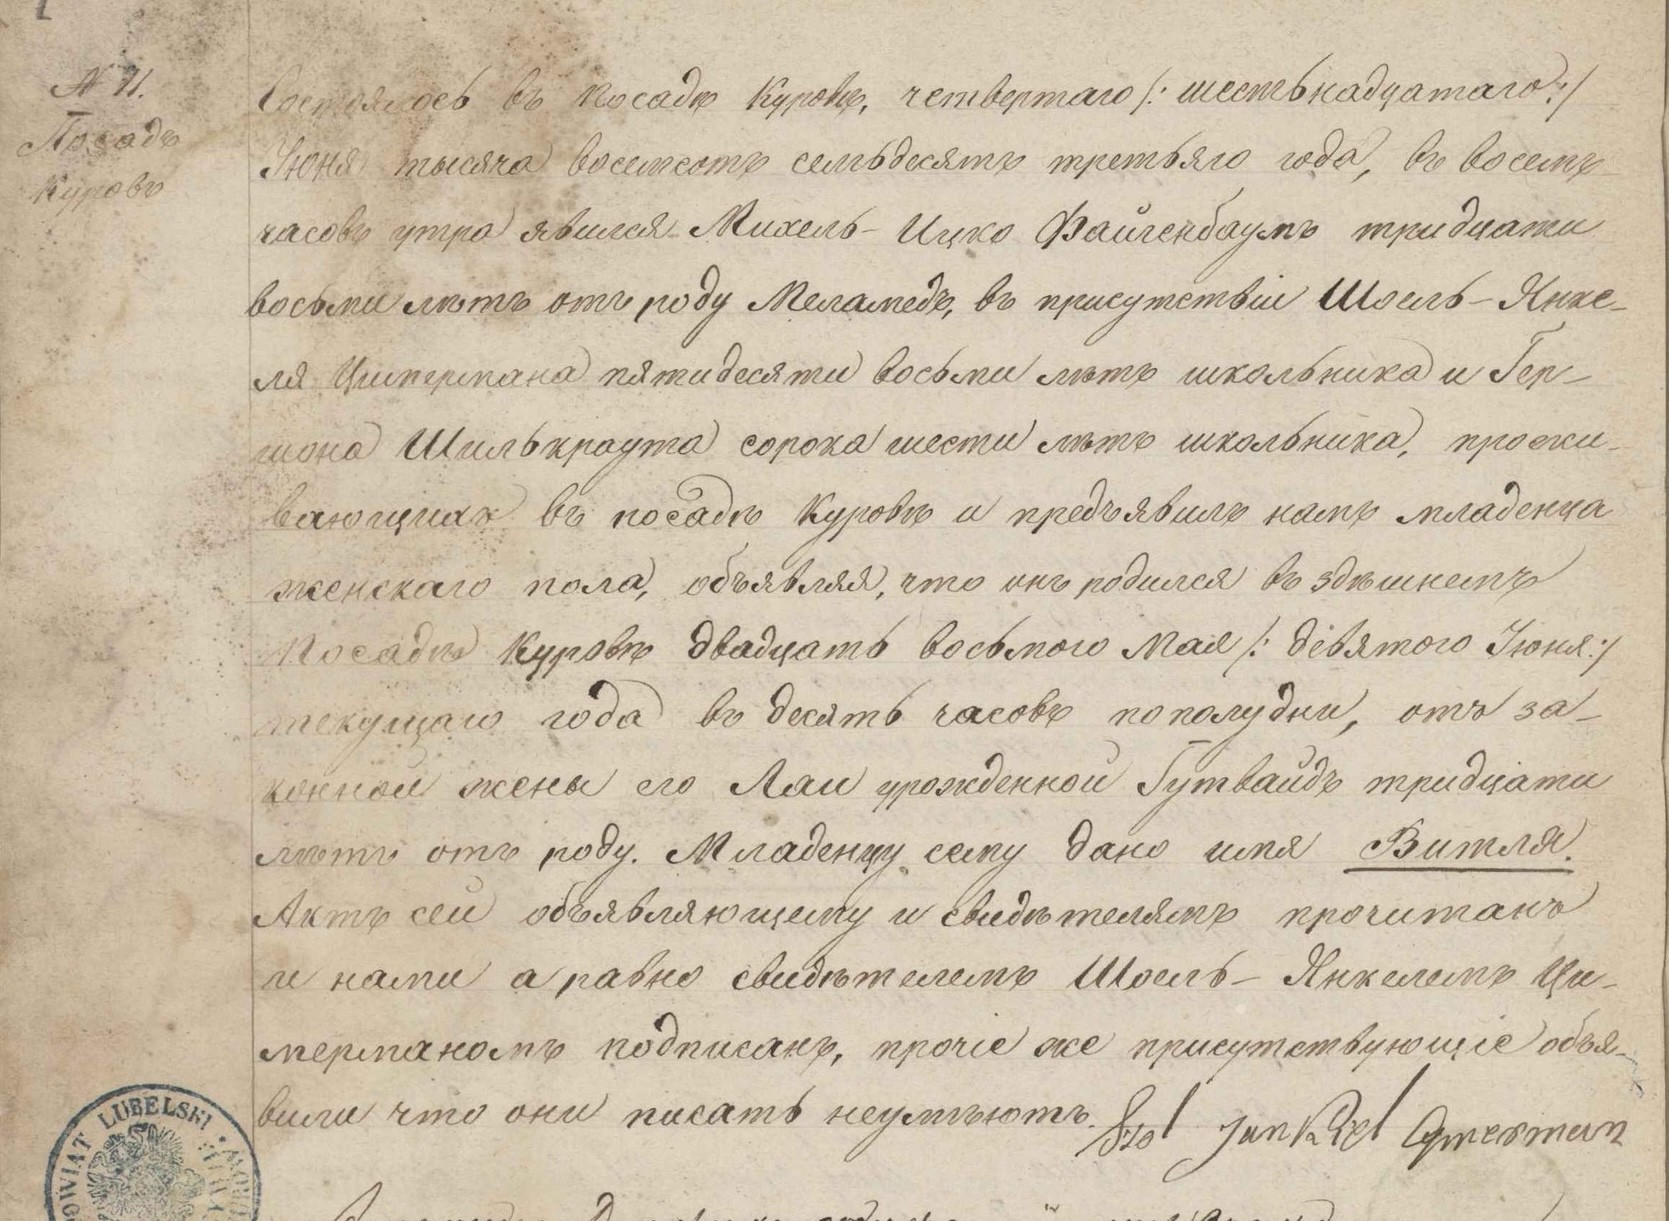 N 71.
Посадъ
Куровъ
Состоялось въ посадѣ Куровѣ, четвертаго /: шестьнадцатаго :/
Іюня тысяча восемсотъ семьдесятъ третьяго года, въ восемъ
часовъ утра явился Михель- Ицко Файгенбаумъ тридцати
восьми лѣтъ отъ роду Меламедъ, въ присутствіи Шоель- Янке-
ля Цимермана пятидесяти восьми лѣтъ школьника и Гер-
шона Шилькраута сорока шести лѣтъ школьника, прожи-
вающихъ въ посадѣ Куровѣ и предъявилъ намъ младенца
женскаго пола, объявляя, что онъ родился въ здѣшнемъ
Посадѣ Куровѣ двадцать восьмого Мая /: девятого Іюня :/
текущаго года въ десять часовъ пополудни, отъ за-
конной жены его Лаи урожденной Гутвайдъ тридцати
лѣтъ отъ роду. Младенцу сему дано имя Витля.
Актъ сей объявляющему и свидѣтелямъ прочитанъ
и нами а равно свидѣтелемъ Шоель- Янкелемъ Ци-
мерманомъ подписанъ, прочіе же присутствующіе объя-
вили что они писать неумѣютъ.
Jankel Cymerman
POWIAT LUBELSKI